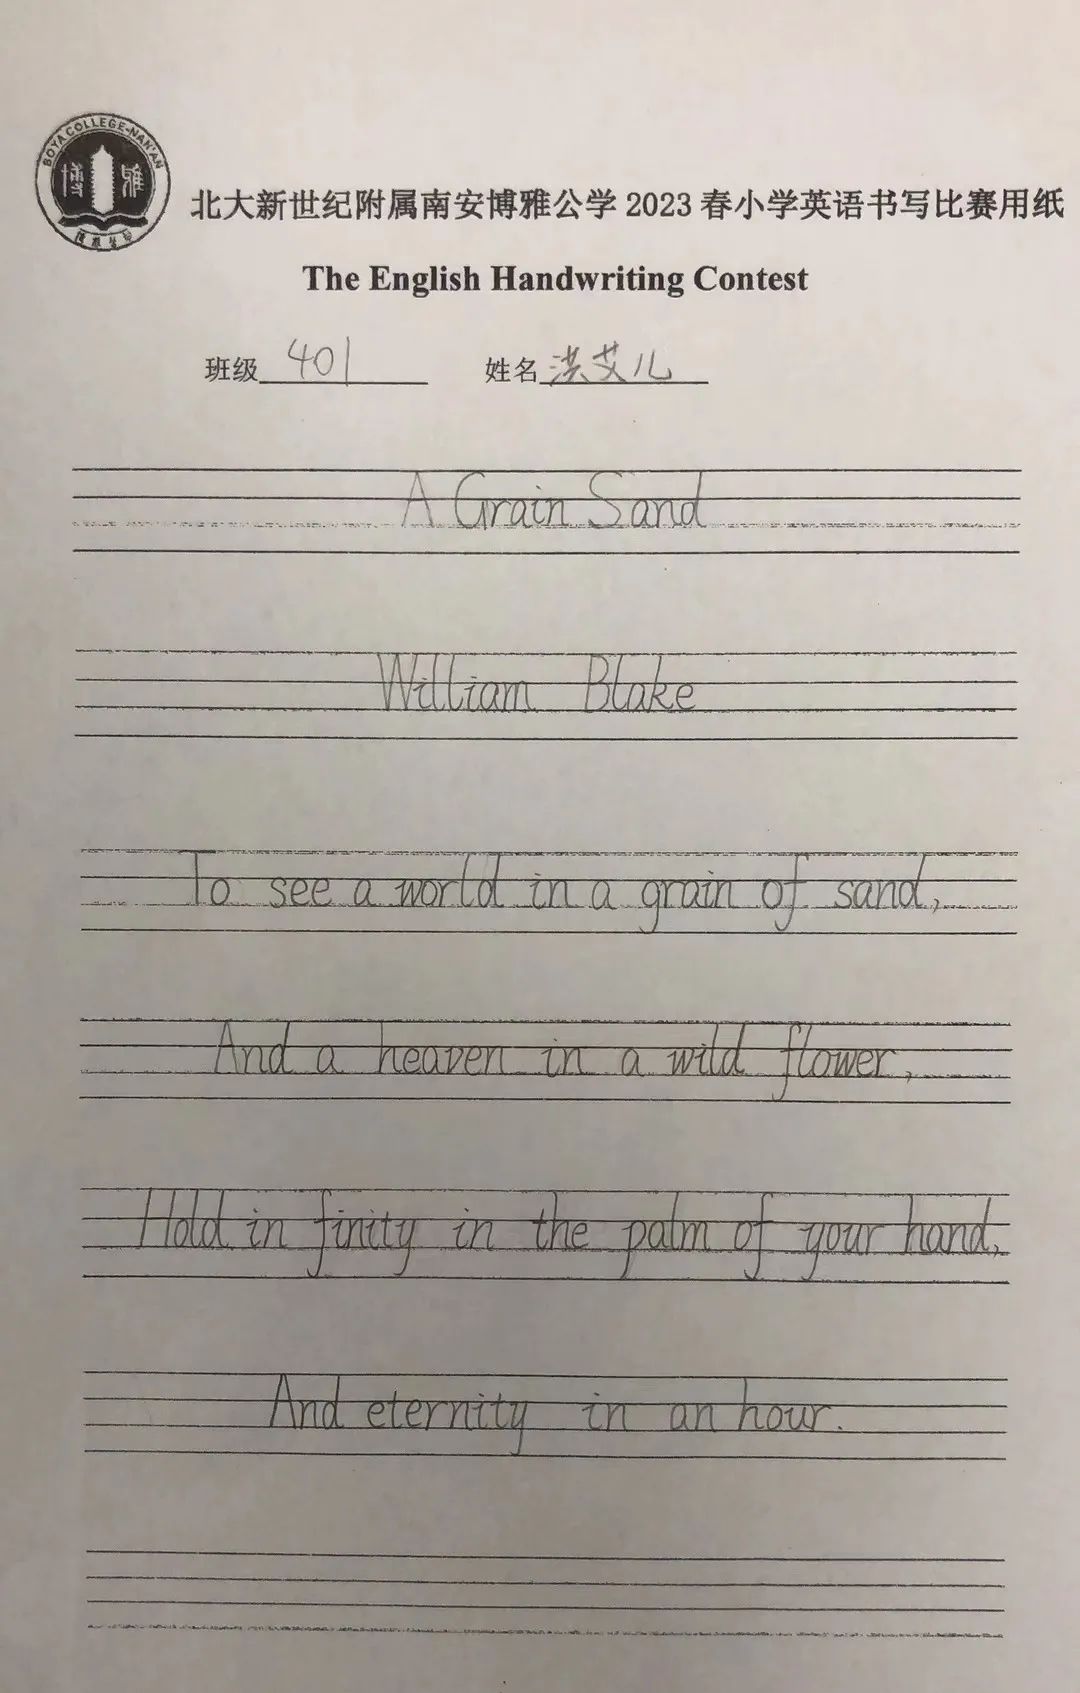 BOYA COLLEGE-NAN'AN
博雅
北大新世纪附属南安博雅公学 2023 春小学英语书写比赛用纸
The English Handwriting Contest
班级 401 姓名 洪艾儿
A Grain Sand
William Blake
To see a world in a grain of sand,
And a heaven in a wild flower,
Hold in finity in the palm of your hand,
And eternity in an hour.